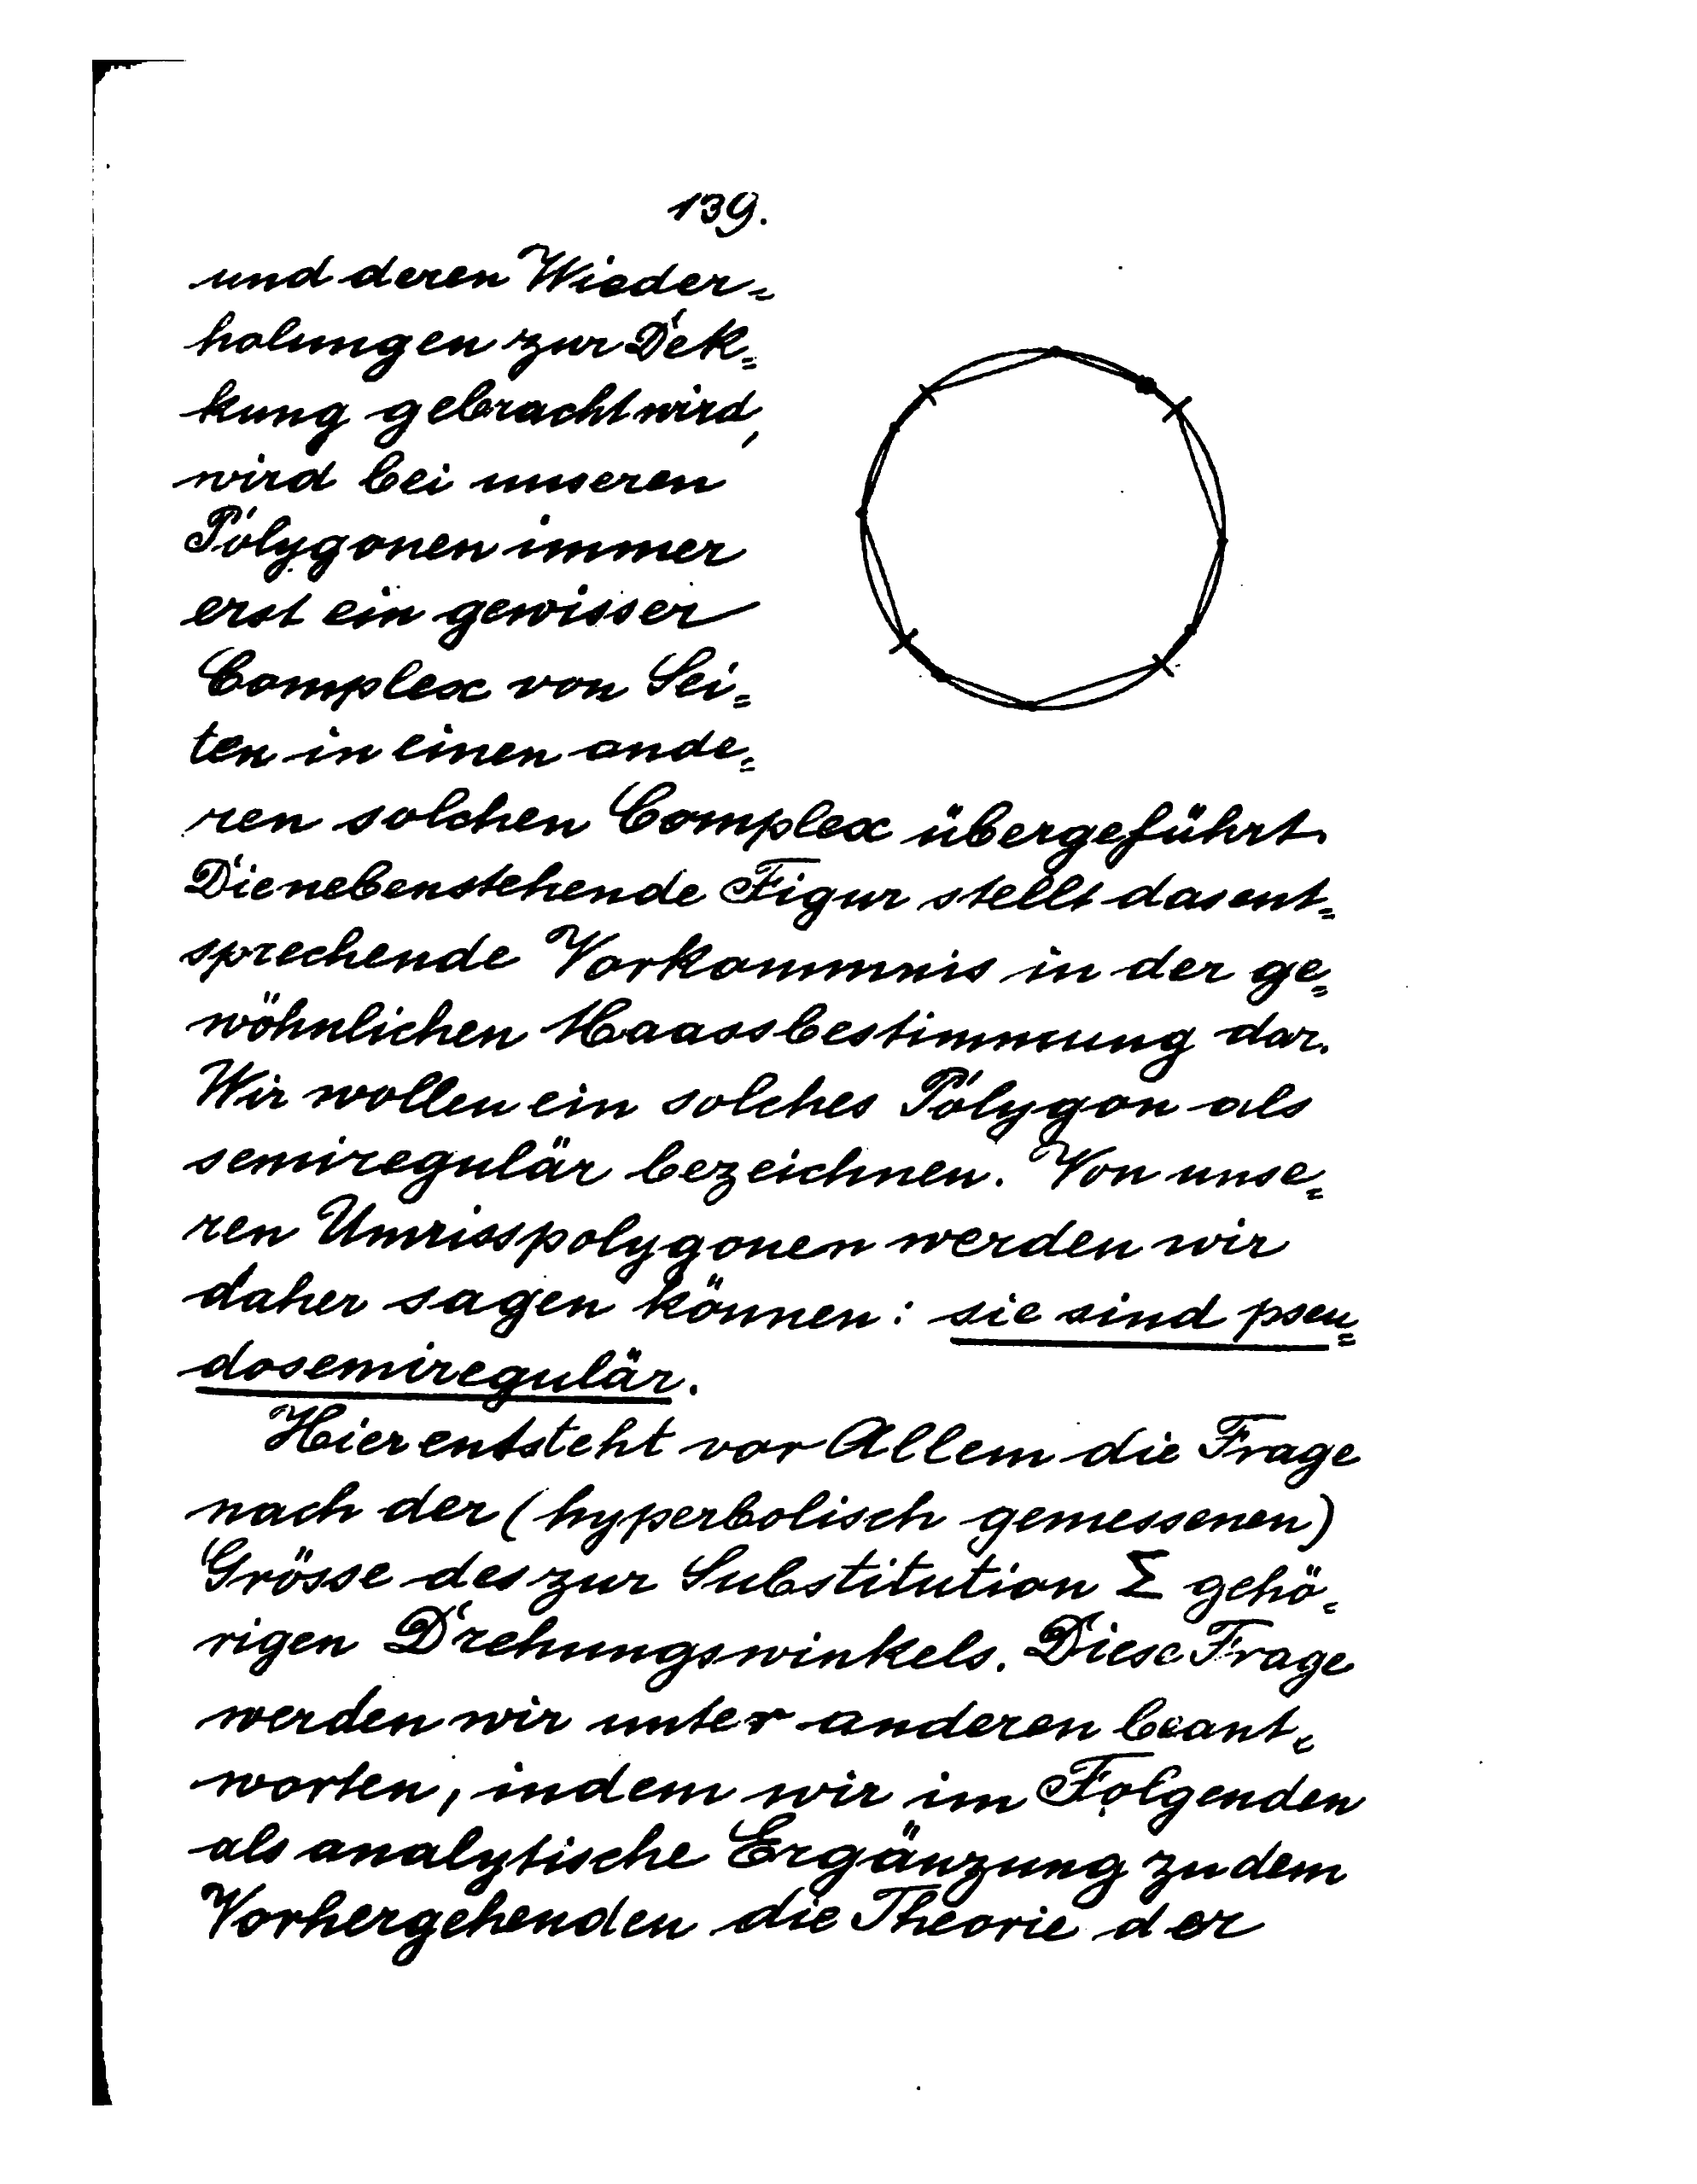 139.
und deren Wieder=
holungen zur Dek=
kung gebracht wird,
wird bei unseren
Polygonen immer
erst ein gewisser
Complex von Sei=
ten in einen ande=
ren solchen Complex übergeführt.
Die nebenstehende Figur stellt das ent=
sprechende Vorkommnis in der ge=
wöhnlichen Maassbestimmung dar.
Wir wollen ein solches Polygon als
semiregulär bezeichnen. Von unse=
ren Umrisspolygonen werden wir
daher sagen können: sie sind pseu=
dosemiregulär.
Hier entsteht vor Allem die Frage
nach der (hyperbolisch gemessenen)
Grösse des zur Substitution Σ gehö=
rigen Drehungswinkels. Diese Frage
werden wir unter anderen beant=
worten, indem wir im Folgenden
als analytische Ergänzung zu dem
Vorhergehenden die Theorie der